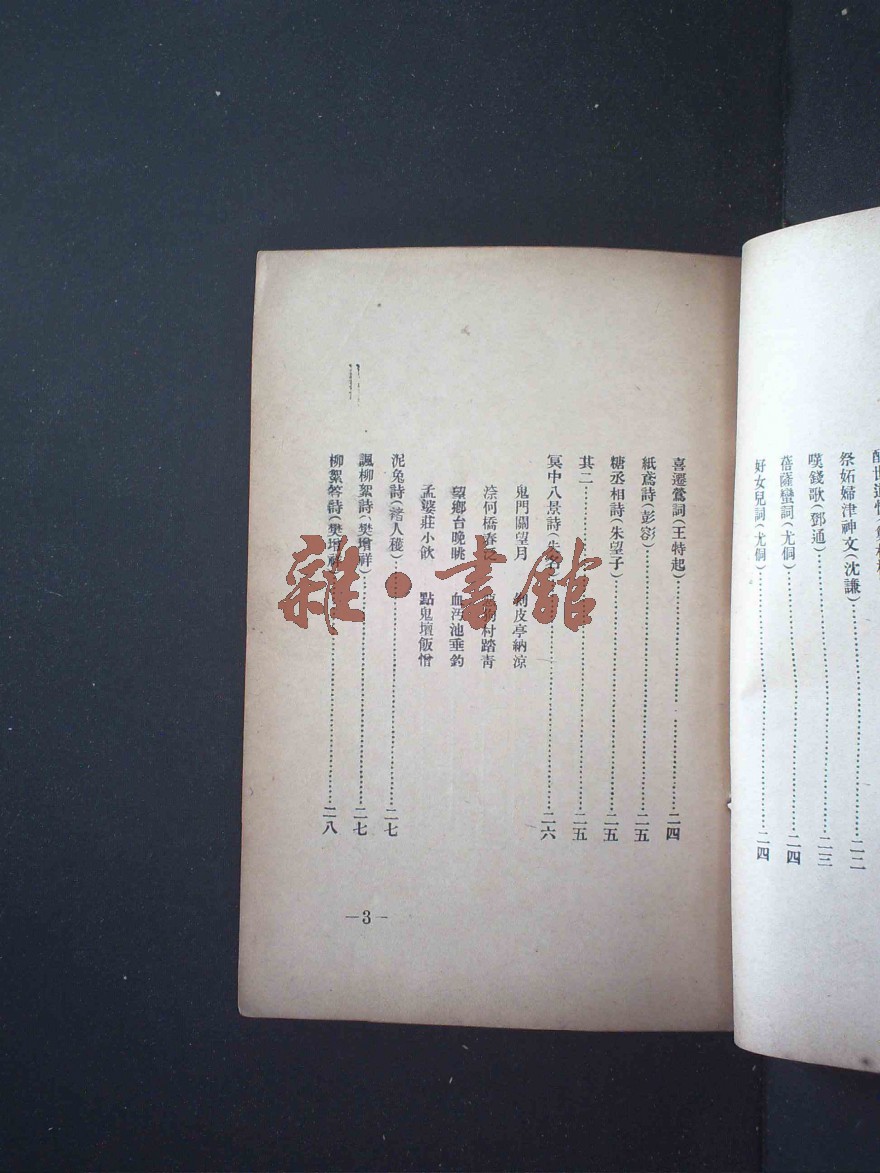 祭妬婦津神文(沈謙)……二二
嘆錢歌(鄧通)……二三
菩薩蠻詞(尤侗)……二四
好女兒詞(尤侗)……二四
喜遷鶯詞(王特起)……二四
紙鳶詩(彭)……二五
糖丞相詩(朱望子)……二五
其二……二五
冥中八景詩(失名)……二六
鬼門關望月 剝皮亭納涼
柰何橋春泛 村踏青
望鄉台晚眺 血汚池垂釣
孟婆莊小飲 點鬼壇飯僧
泥兔詩(褚人穫)……二七
諷柳絮詩(樊增祥)……二七
柳絮答詩(樊增祥)……二八
—3—
雜·書館